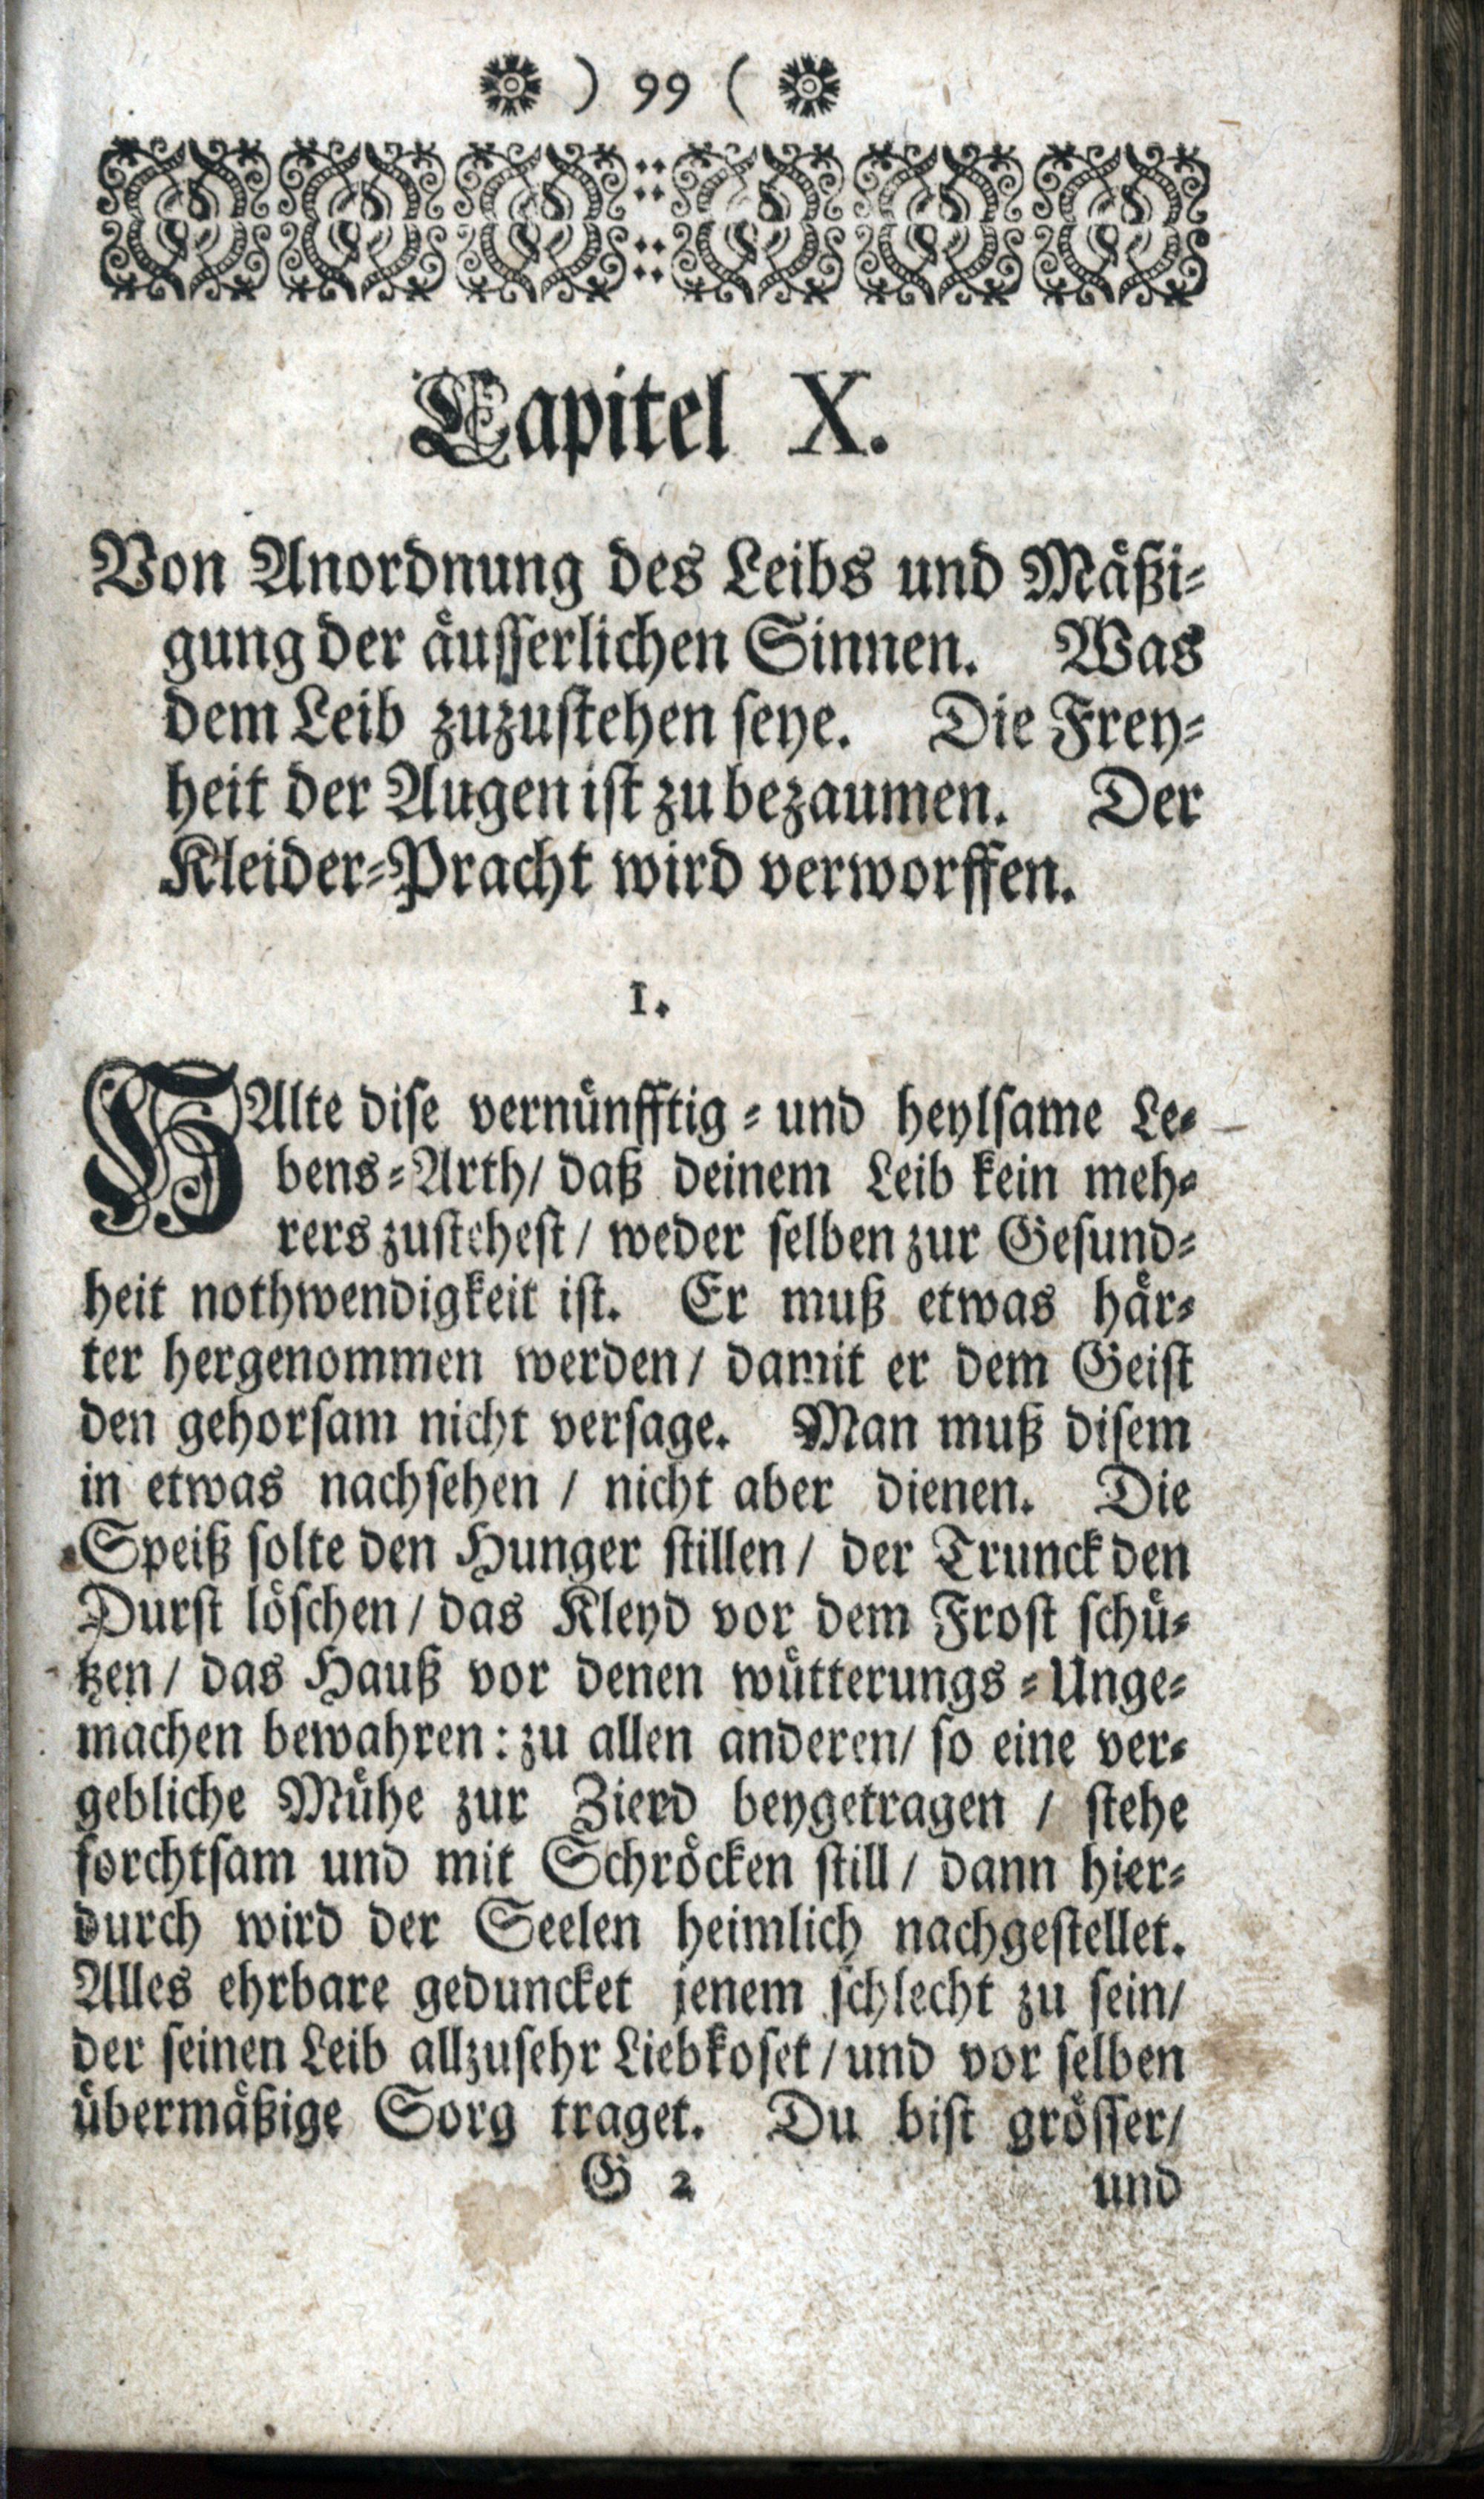 ) 99 (
Capitel X.
Von Anordnung des Leibs und Mäßi-
gung der äusserlichen Sinnen. Was
dem Leib zuzustehen seye. Die Frey-
heit der Augen ist zu bezaumen. Der
Kleider-Pracht wird verworffen.
1.
HAlte dise vernünfftig- und heylsame Le-
bens-Arth/ daß deinem Leib kein meh-
rers zustehest/ weder selben zur Gesund-
heit nothwendigkeit ist. Er muß etwas här-
ter hergenommen werden/ damit er dem Geist
den gehorsam nicht versage. Man muß disem
in etwas nachsehen / nicht aber dienen. Die
Speiß solte den Hunger stillen/ der Trunck den
Durst löschen/ das Kleyd vor dem Frost schü-
tzen/ das Hauß vor denen wütterungs-Unge-
machen bewahren: zu allen anderen/ so eine ver-
gebliche Mühe zur Zierd beygetragen / stehe
forchtsam und mit Schröcken still/ dann hier-
durch wird der Seelen heimlich nachgestellet.
Alles ehrbare geduncket jenem schlecht zu sein/
der seinen Leib allzusehr Liebkoset/und vor selben
übermäßige Sorg traget. Du bist grösser/
G 2 und